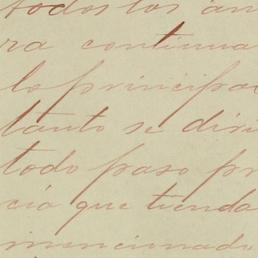 todos los an
ra continua
lo principal
tanto se diri
todo paso pr
cia que tienda
mencionado